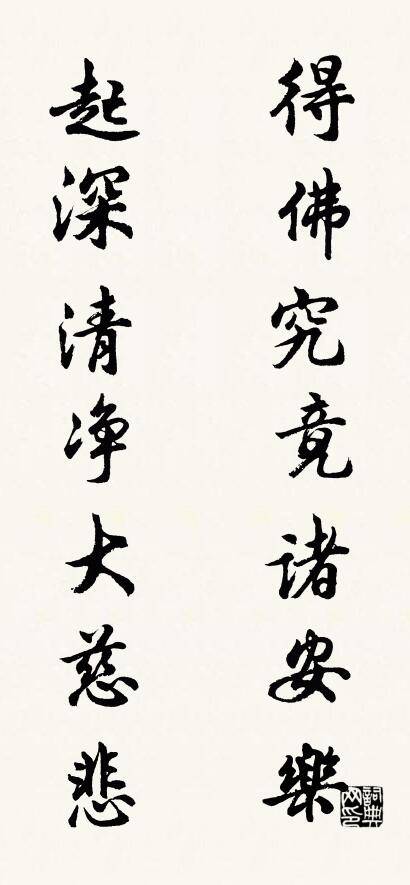 得佛究竟诸安樂
起深清净大慈悲